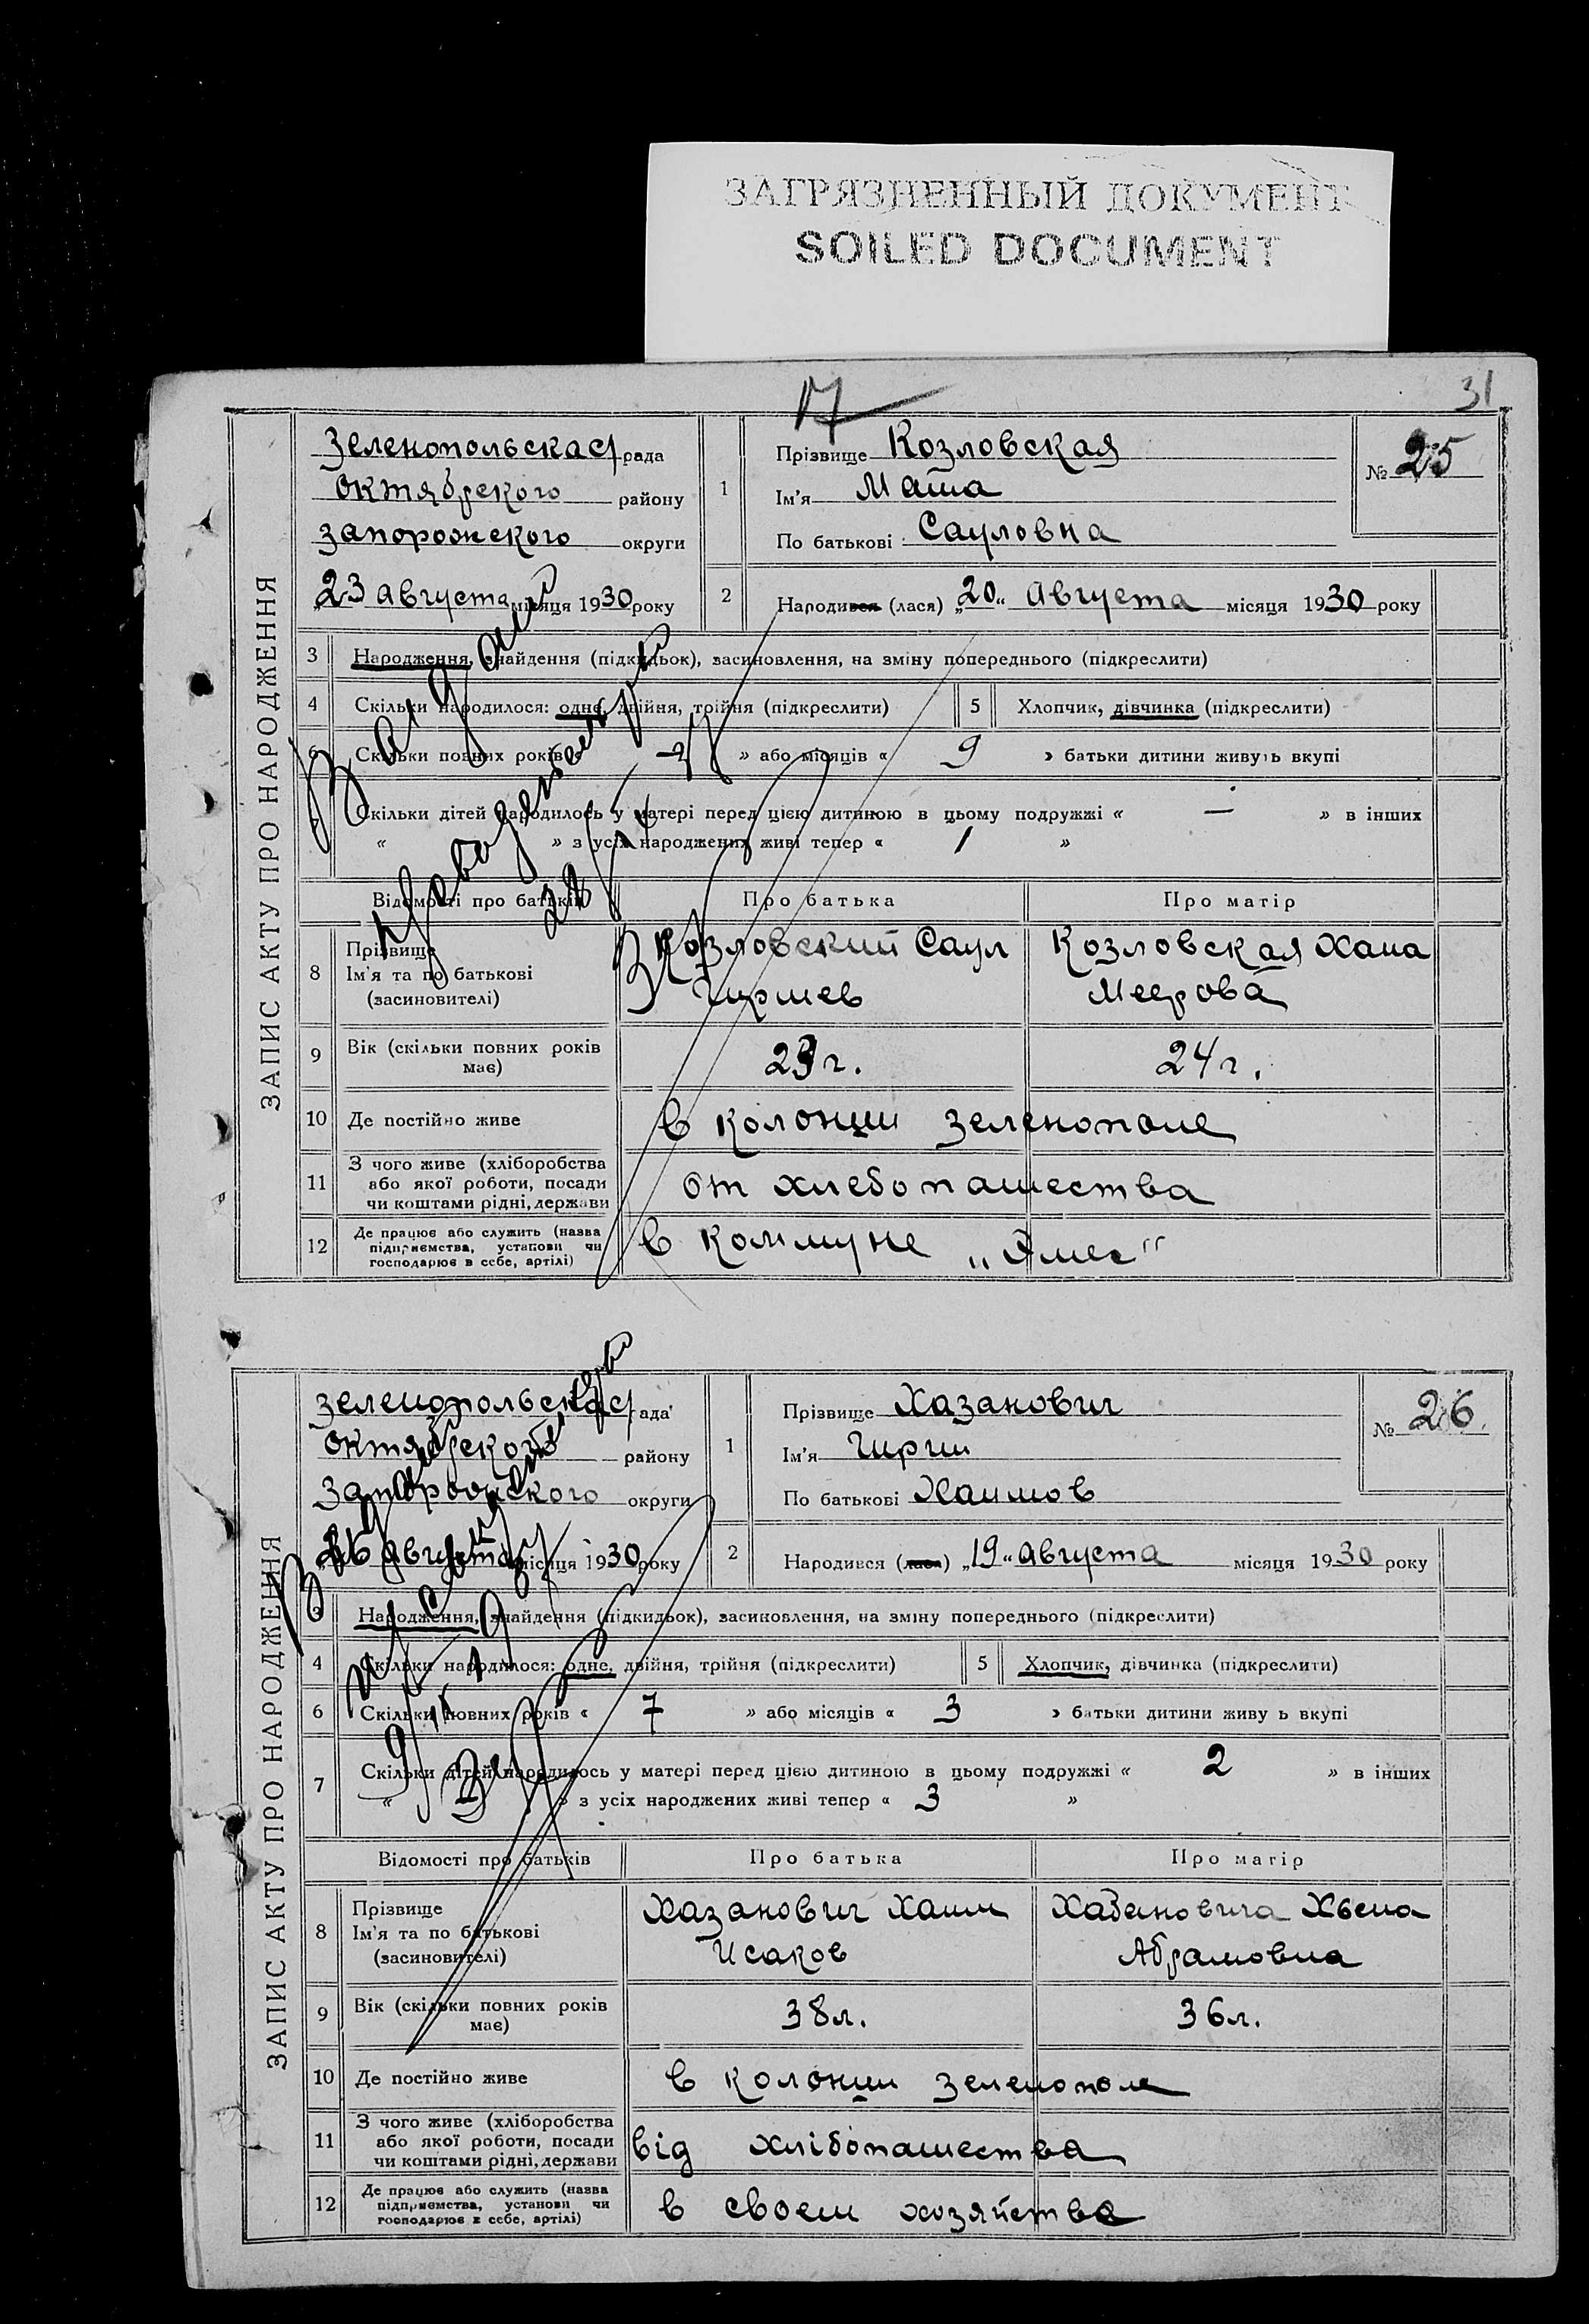 ЗАГРЯЗНЕННЫЙ ДОКУМЕНТ
SOILED DOCUMENT
17
31
ЗАПИС АКТУ ПРО НАРОДЖЕННЯ
Зеленопольская с/рада
октябрского району
запорожского округи
„23 августа місяця 1930 року
1
Прізвище Козловская
Ім'я Маша
По батькові Сауловна
№ 25
2
Народився (лася) „20“ Августа місяця 1930 року
3 Народження, знайдення (підкидьок), засиновлення, на зміну попереднього (підкреслити)
4 Скільки народилося: одне, двійня, трійня (підкреслити)
5 Хлопчик, дівчинка (підкреслити)
6 Скільки повних років « — » або місяців « 9 » батьки дитини живуть вкупі
7 Скільки дітей народилось у матері перед цією дитиною в цьому подружжі « — » в інших
« » з усіх народжених живі тепер « 1 »
Відомості про батьків
Про батька
Про матір
8 Прізвище
Ім'я та по батькові
(засиновителі)
Козловский Саул
Гиршев
Козловская Хана
Меерова
9 Вік (скільки повних років
має)
23 г.
24 г.
10 Де постійно живе
в колонии зеленополе
11 З чого живе (хліборобства
або якої роботи, посади
чи коштами рідні, держави
от хлебопашества
12 Де працює або служить (назва
підприємства, установи чи
господарює в себе, артілі)
в коммуне „Эмес“
ЗАПИС АКТУ ПРО НАРОДЖЕННЯ
зеленопольская с/рада
октябрского району
Запорожского округи
26 августа місяця 1930 року
1
Прізвище Хазанович
Ім'я Гирш
По батькові Хаимов
№ 26.
2
Народився (лася) „19“ августа місяця 1930 року
3 Народження, знайдення (підкидьок), засиновлення, на зміну попереднього (підкреслити)
4 Скільки народилося: одне, двійня, трійня (підкреслити)
5 Хлопчик, дівчинка (підкреслити)
6 Скільки повних років « 7 » або місяців « 3 » батьки дитини живу ь вкупі
7 Скільки дітей народилось у матері перед цією дитиною в цьому подружжі « 2 » в інших
« » з усіх народжених живі тепер « 3 »
Відомості про батьків
Про батька
Про матір
8 Прізвище
Ім'я та по батькові
(засиновителі)
Хазанович Хаим
Исаков
Хазановича Хьена
Абрамовна
9 Вік (скільки повних років
має)
38 л.
36 л.
10 Де постійно живе
в колонии зеленополе
11 З чого живе (хліборобства
або якої роботи, посади
чи коштами рідні, держави
від хлібопашества
12 Де працює або служить (назва
підприємства, установи чи
господарює в себе, артілі)
в своем хозяйстве